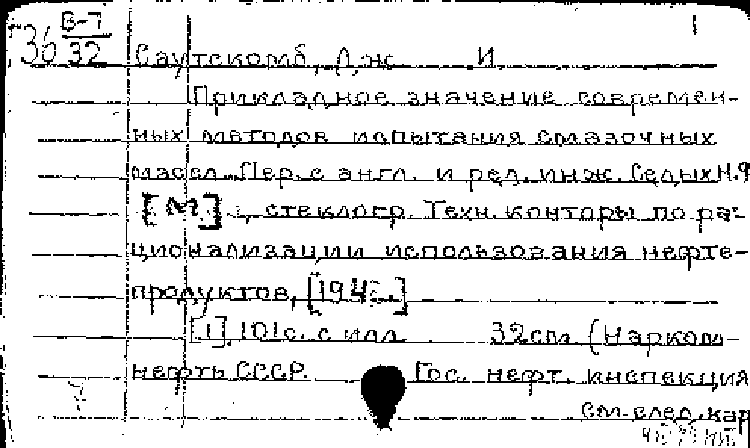 В-7
36 32
Саутскомб, Дж И
Прикладное значение современ-
ных методов испытания смазочных
масел. Пер. с англ. и ред. инж. Седых Н.Ф
[М], стеклогр. Техн. конторы по ра-
ционализации использования нефте-
продуктов,
[1], 101с. с илл 32см. (Нарком-
нефть СССР. Гос. нефт. инспекция
См. след. кар